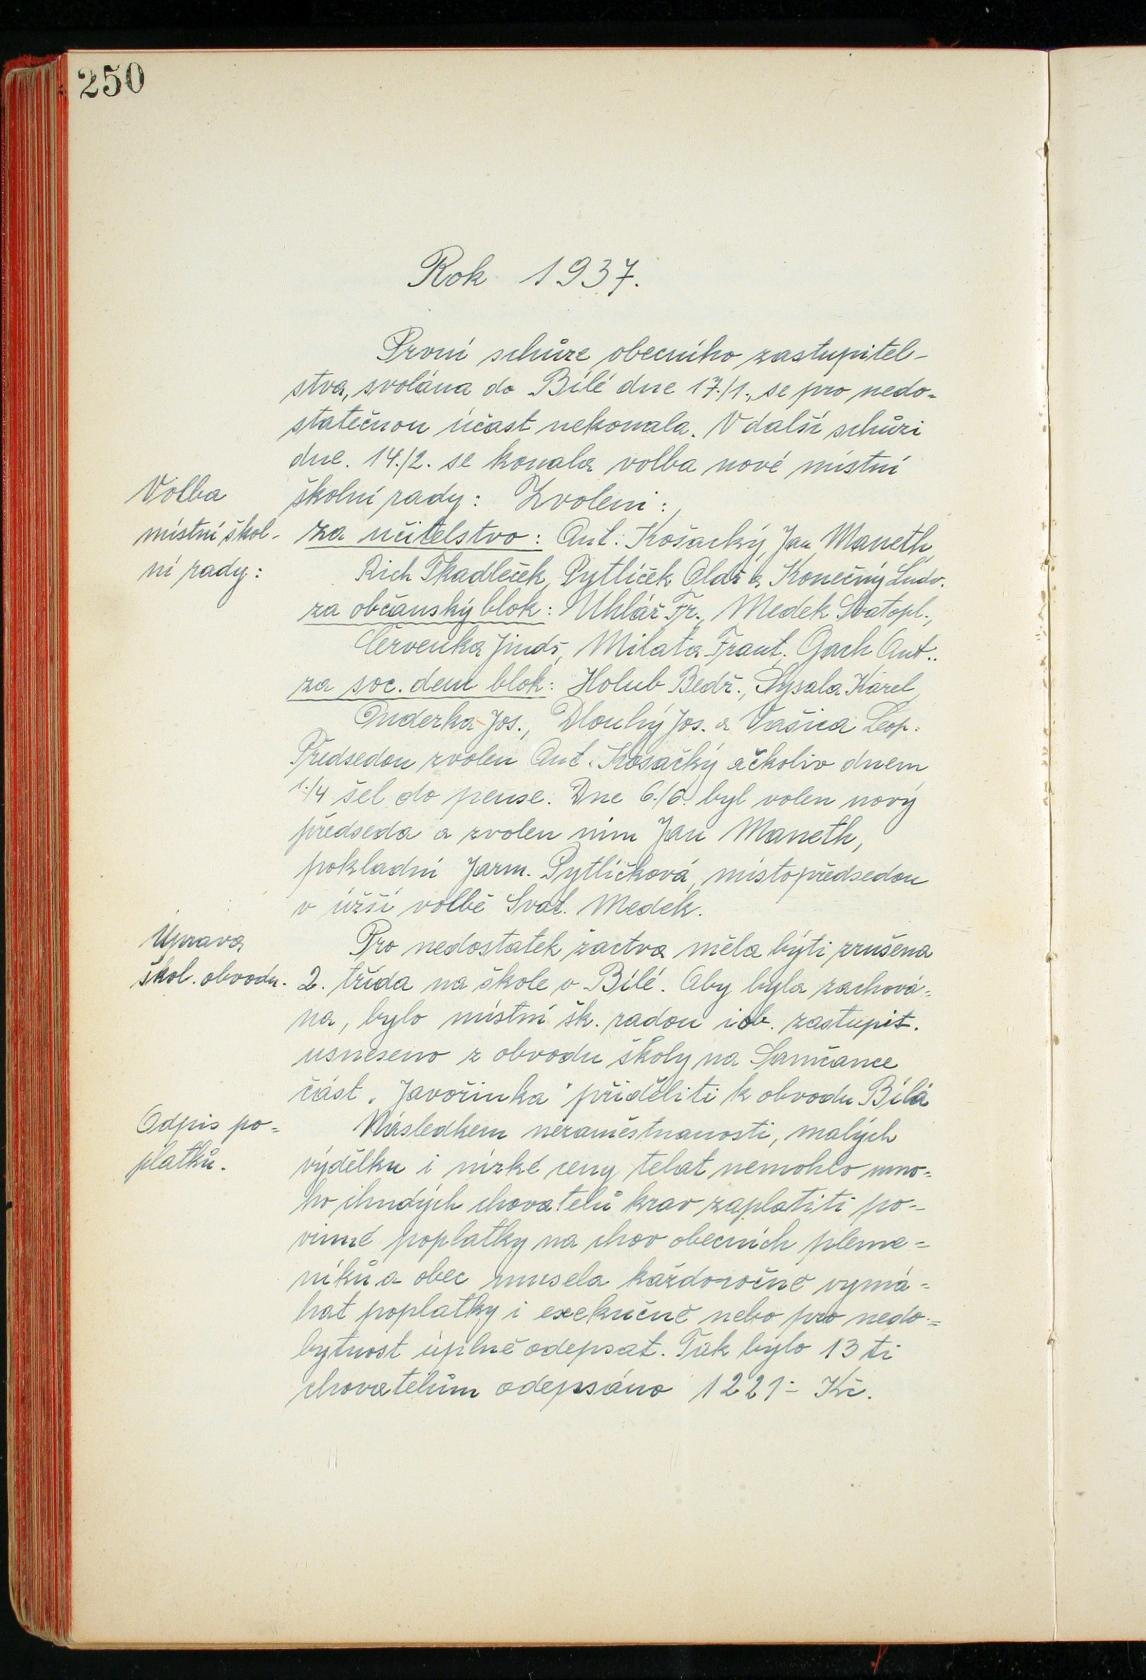 250
Rok 1937.
První schůze obecního zastupitel-
stva, svolána do Bílé dne 17./1., se pro nedo-
statečnou účast nekonala. V další schůzi
dne. 14./2. se konala volba nové místní
Volba
místní škol-
ní rady:
školní rady: Zvoleni:
za učitelstvo: Ant. Košacký, Jan Maneth,
Rich Tkadleček, Pytlíček Oldř. a Konečný Ludv.
za občanský blok: Uhlář Fr., Medek Svatopl.,
Červenka Jindř, Milata Frant. Gach Ant..
za soc. dem blok: Holub Bedř., Sysala Karel,
Onderka Jos., Dlouhý Jos. a Vašica Leop.
Předsedou zvolen Ant. Kosačký ačkoliv dnem
1./4 šel do pense. Dne 6./6. byl volen nový
předseda a zvolen ním Jan Maneth,
pokladní Jarm. Pytlíčková, místopředsedou
v užší volbě Svat. Medek.
Úprava
škol. obvodu.
Pro nedostatek žactva měla býti zrušena
2. třída na škole v Bílé. Aby byla zachová-
na, bylo místní šk. radou i ob. zastupit.
usneseno z obvodu školy na Samčance
část „Javořinka" přiděliti k obvodu Bílá
Odpis po-
platků.
Následkem nezaměstnanosti, malých
výdělku i nízké ceny telat nemohlo mno-
ho chudých chovatelů krav zaplatiti po-
vinné poplatky na chov obecních pleme-
níků a obec musela každoročně vymá-
hat poplatky i exekučně nebo pro nedo-
bytnost úplně odepsat. Tak bylo 13 ti
chovatelům odepsáno 1221.- Kč.